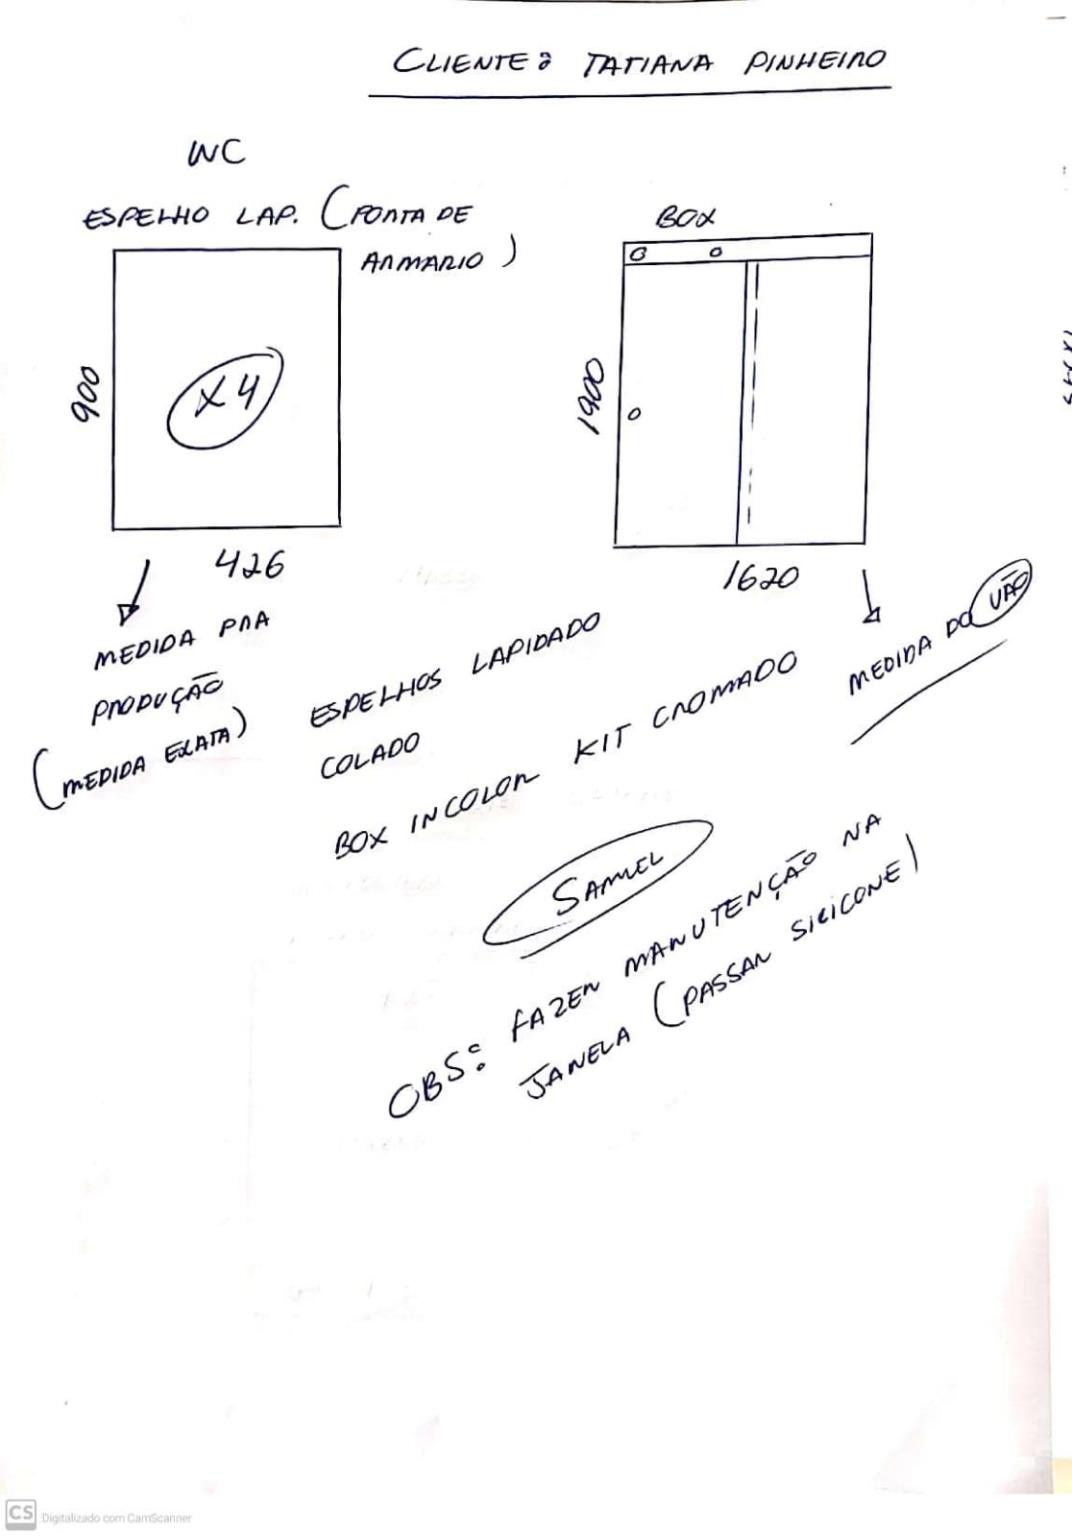 CLIENTE: TATIANA PINHEIRO
WC
ESPELHO LAP. (PORTA DE
ARMARIO)
BOX
900
X4
426
1900
1620
MEDIDA PRA
PRODUÇÃO
(MEDIDA EXATA)
MEDIDA DO VÃO
ESPELHOS LAPIDADO
COLADO
BOX INCOLOR KIT CROMADO
SAMUEL
OBS: FAZER MANUTENÇÃO NA
JANELA (PASSAR SILICONE)
CS Digitalizado com CamScanner